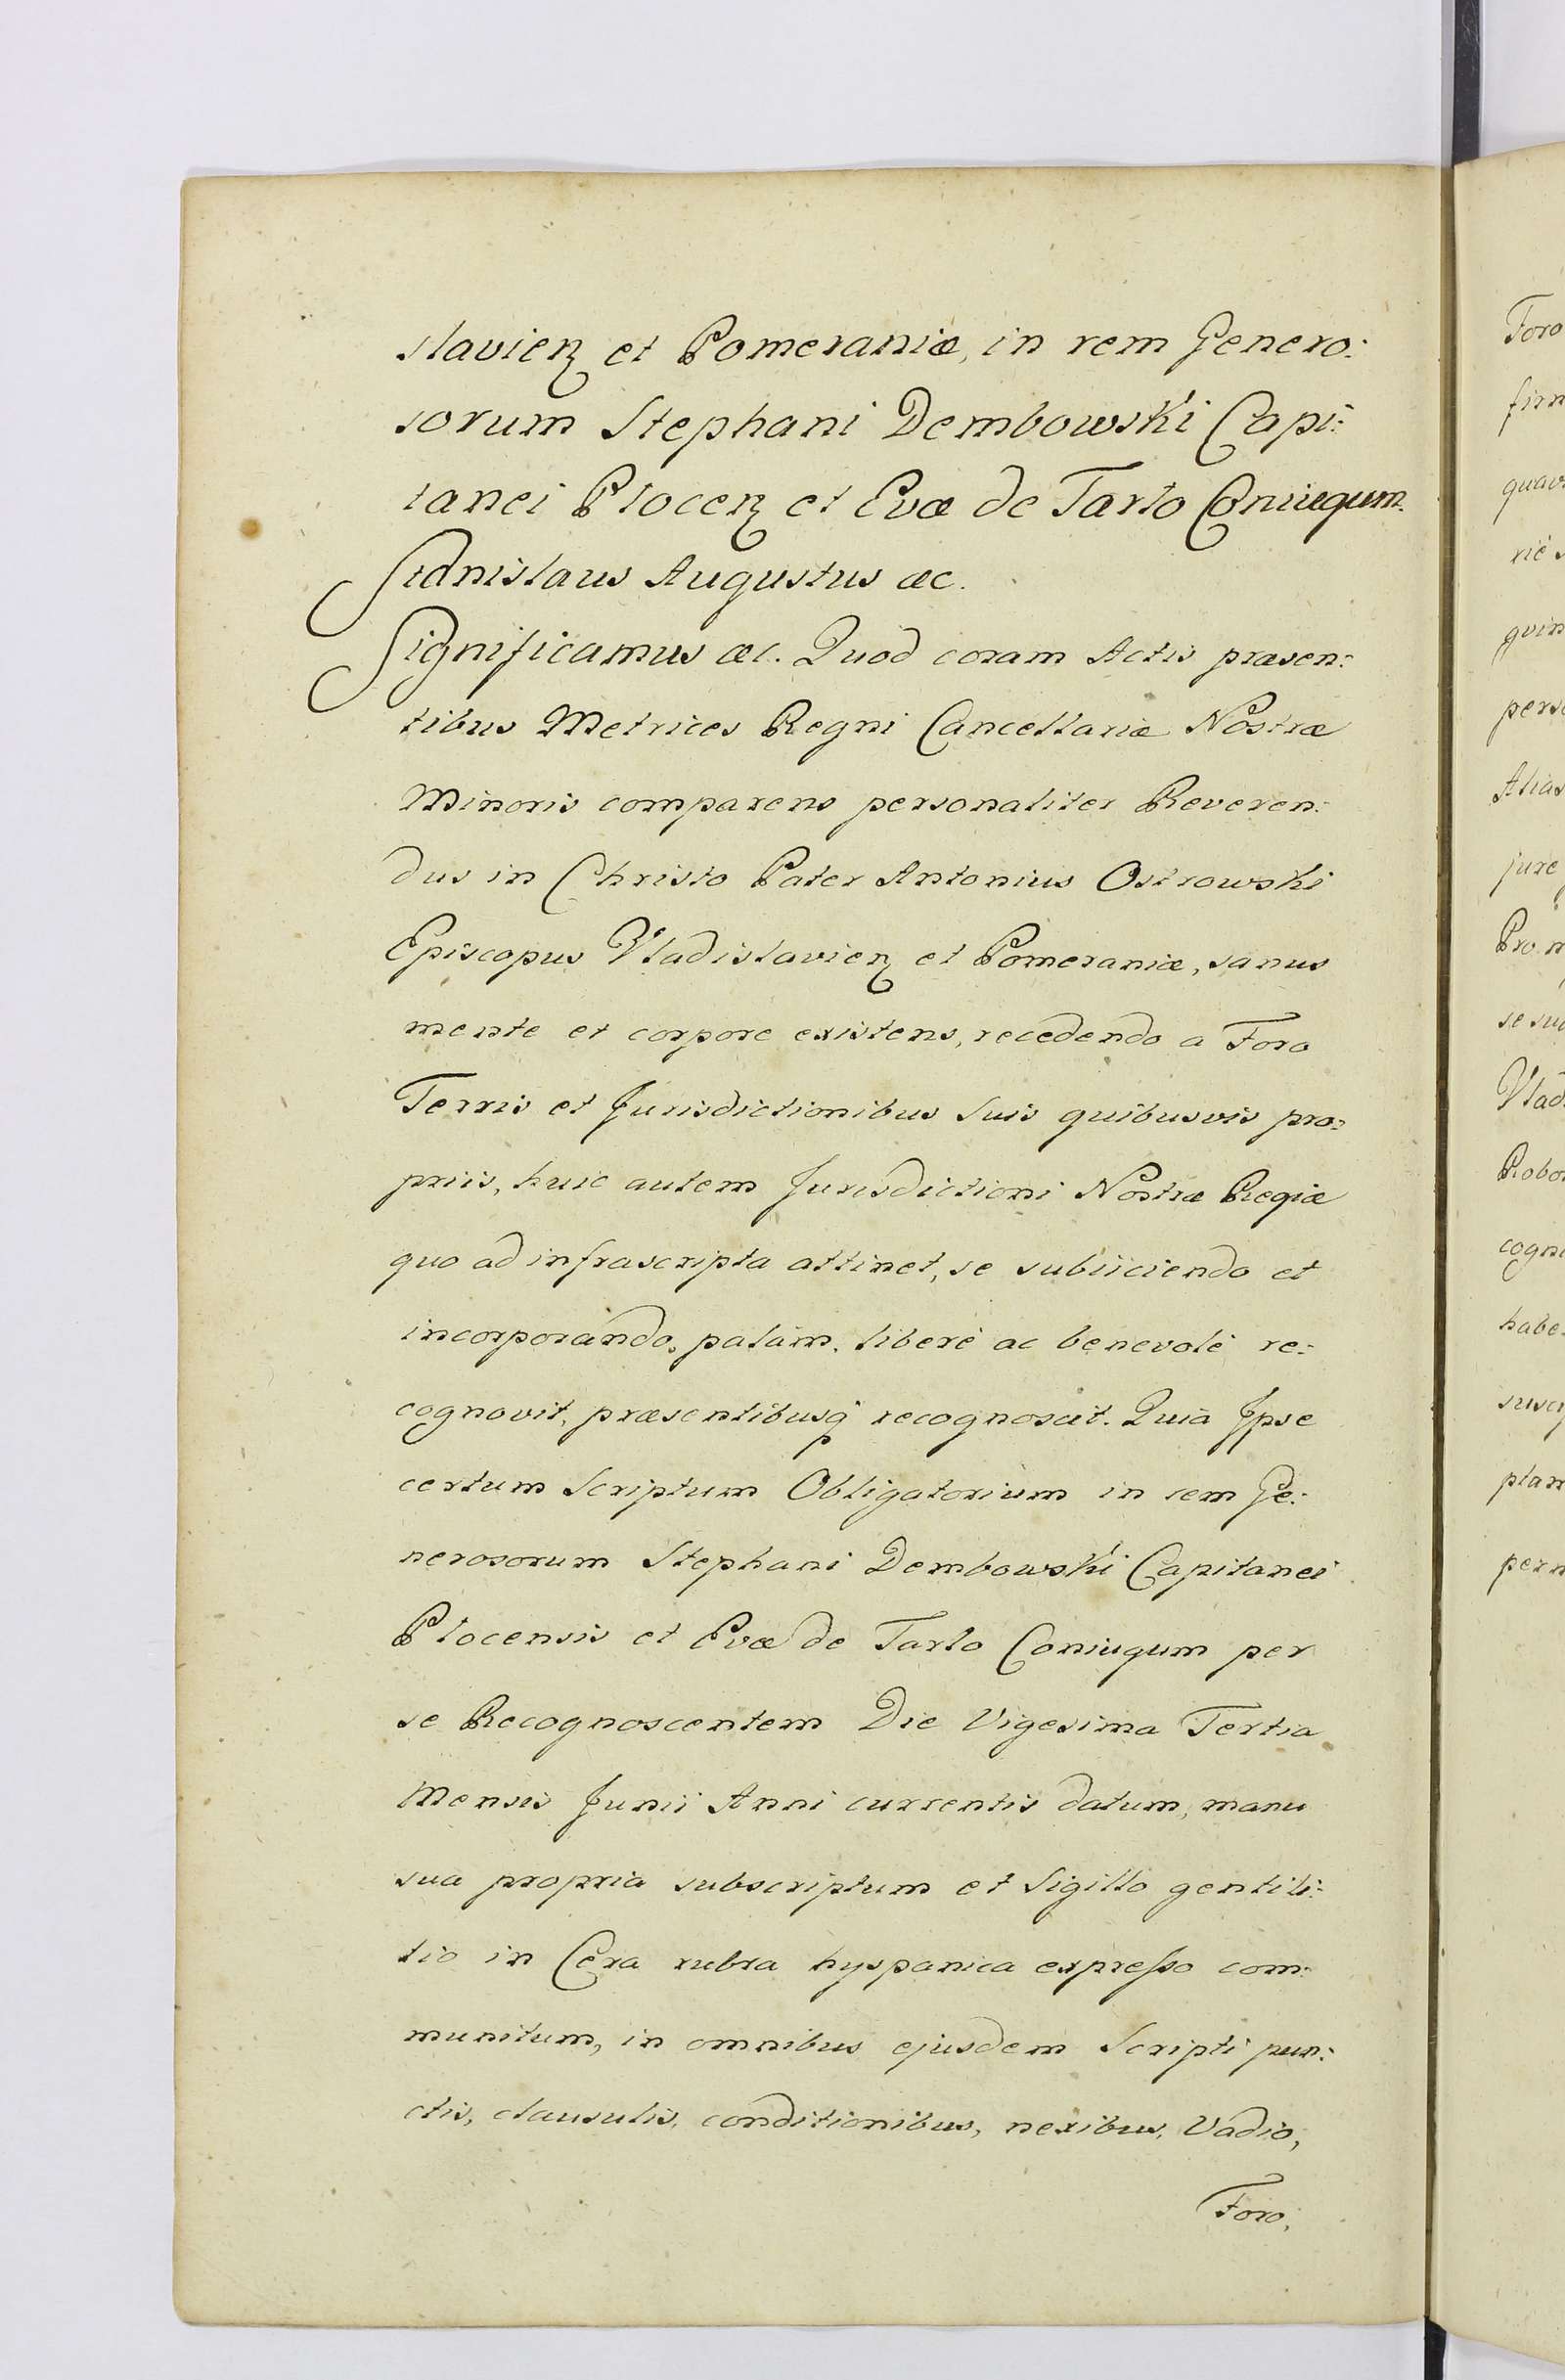 slavien et Pomeraniæ, in rem Genero:
sorum Stephani Dembowski Capi:
tanei Plocen et Evæ de Tarło Coniugum.
Stanislaus Augustus &c.
Significamus &c. Quod coram Actis præsen:
tibus Metrices Regni Cancellariæ Nostræ
Minoris comparens personaliter Reveren:
dus in Christo Pater Antonius Ostrowski
Episcopus Vladislavien et Pomeraniæ, sanus
mente et corpore existens, recedendo a Foro
Terris et Jurisdictionibus suis quibusvis pro:
priis, huic autem Jurisdictioni Nostræ Regiæ
quo ad infrascripta attinet, se subiiciendo et
incorporando, palàm, liberè ac benevolè re:
cognovit, præsentibusq recognoscit. Quia Ipse
certum Scriptum Obligatorium in rem Ge:
nerosorum Stephani Dembowski Capitanei
Plocensis et Evæ de Tarło Coniugum per
se Recognoscentem Die Vigesima Tertia
Mensis Junii Anni currentis datum, manu
sua propria subscriptum et Sigillo gentili:
tio in Cera rubra hyspanica expresso com:
munitum, in omnibus ejusdem Scripti pun:
ctis, clausulis, conditionibus, nexibus, Vadio,
Foro,
Foro
firm
quav
rié s
quin
perso
Alias
jure
Pro n
se sub
Vlad
Robo
cogni
habe
susci
plan
perm